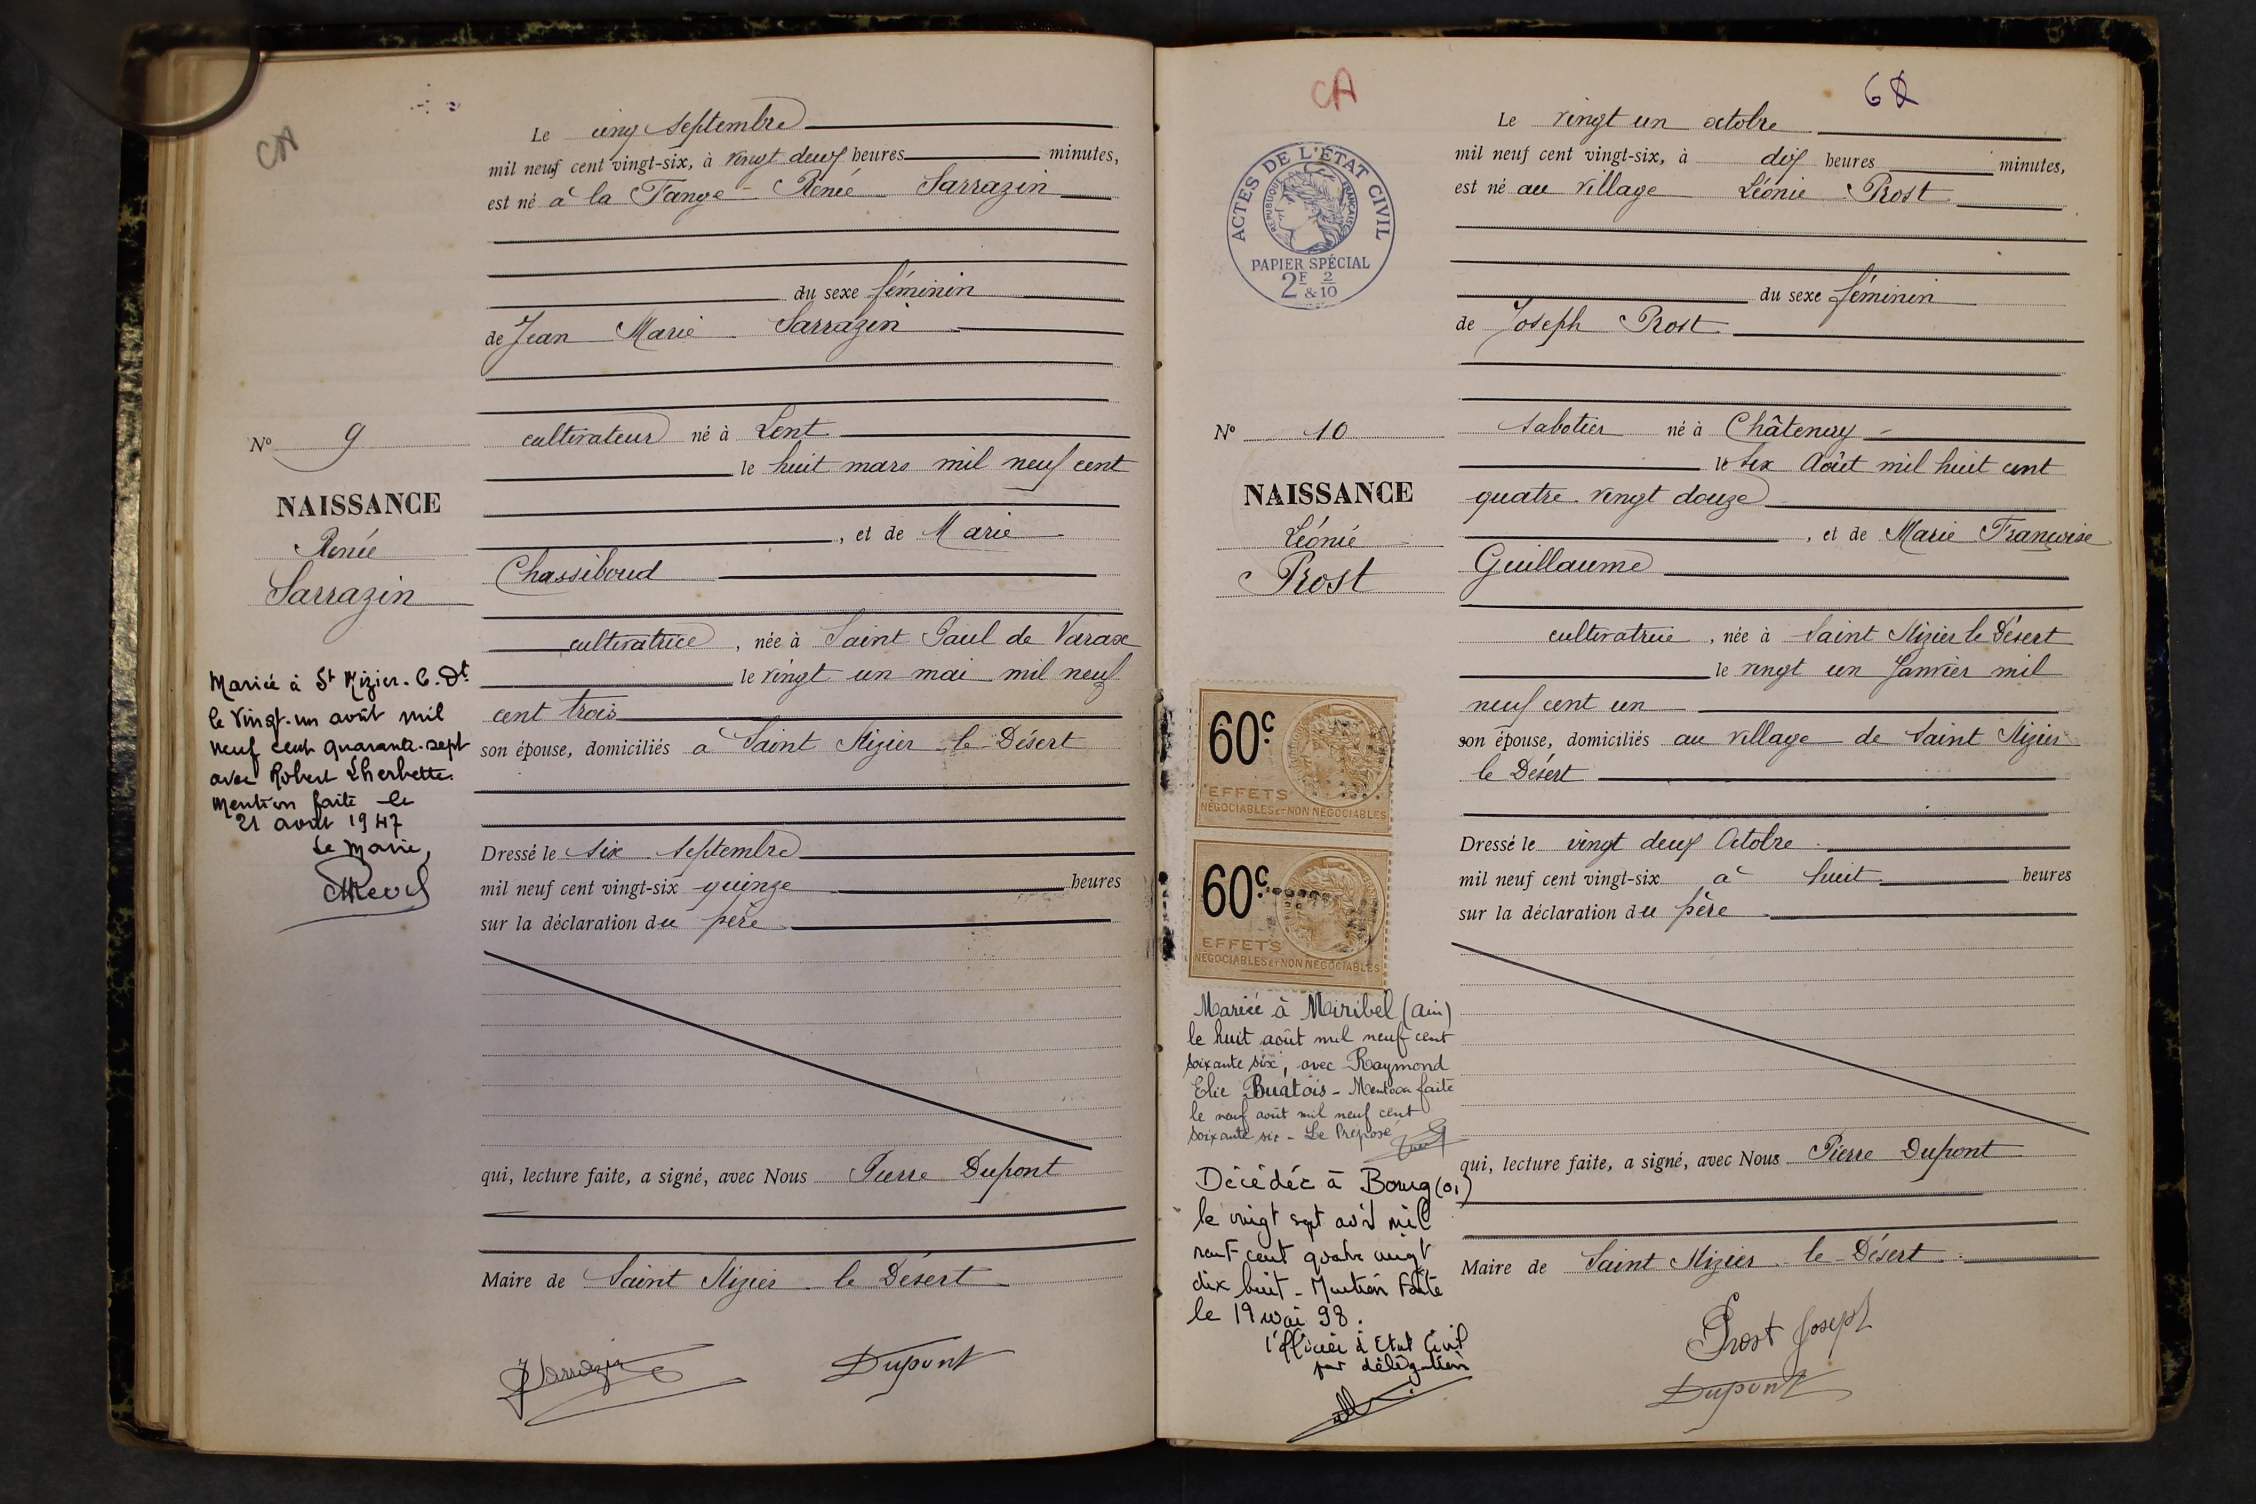 CA
Le cinq Septembre
mil neuf cent vingt-six, à vingt deux heures minutes,
est né à la Fange - Renée Sarrazin
du sexe féminin
de Jean Marie Sarrazin
cultivateur né à Lent
le huit mars mil neuf cent
, et de Marie
Chassiboud
cultivatrice, née à Saint Paul de Varax
le vingt un mai mil neuf
cent trois
son épouse, domiciliés à Saint Nizier le Désert
Dressé le six Septembre
mil neuf cent vingt-six quinze heures
sur la déclaration du père
qui, lecture faite, a signé, avec Nous Pierre Dupont
Maire de Saint Nizier le Désert
J Sarrazin
Dupont
N° 9
NAISSANCE
Renée
Sarrazin
Mariée à St Nizier-l-Dt
le vingt-un août mil
neuf cent quarante-sept
avec Robert Lherbette.
Mention faite le
21 août 1947
Le Maire,
CA
6
ACTES DE L'ÉTAT CIVIL
RÉPUBLIQUE FRANÇAISE
PAPIER SPÉCIAL
2F & 2/10
Le vingt un octobre
mil neuf cent vingt-six, à dix heures minutes,
est né au village Léonie Prost
du sexe féminin
de Joseph Prost
sabotier né à Châtenay
le six Août mil huit cent
quatre-vingt douze
, et de Marie Françoise
Guillaume
cultivatrice, née à Saint Nizier le Désert
le vingt un Janvier mil
neuf cent un
son épouse, domiciliés au village de Saint Nizier
le Désert
Dressé le vingt deux Octobre
mil neuf cent vingt-six à huit heures
sur la déclaration du père
qui, lecture faite, a signé, avec Nous Pierre Dupont
Maire de Saint Nizier le Désert
Prost Joseph
Dupont
N° 10
NAISSANCE
Léonie
Prost
60c.
EFFETS
NÉGOCIABLES ET NON NÉGOCIABLES
60c.
EFFETS
NÉGOCIABLES ET NON NÉGOCIABLES
Mariée à Miribel (Ain)
le huit août mil neuf cent
soixante six, avec Raymond
Elie Buatois - Mention faite
le neuf août mil neuf cent
soixante six - Le Préposé
Décédée à Bourg (01)
le vingt sept avril mil
neuf cent quatre vingt
dix huit - Mention faite
le 19 mai 98.
l'officier d'Etat Civil
par délégation